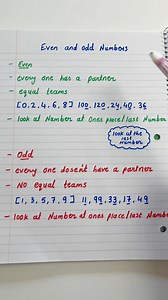 Even and odd Numbers
- Even
- every one has a partner
- equal teams
[0, 2, 4, 6, 8] 100, 120, 24, 40, 36
- look at Number at Ones place/last Number
look at the last number
- Odd
- every one doesn't have a partner
- NO equal teams
[1, 3, 5, 7, 9] 11, 99, 33, 17, 49
- look at Number at ones place/last Number